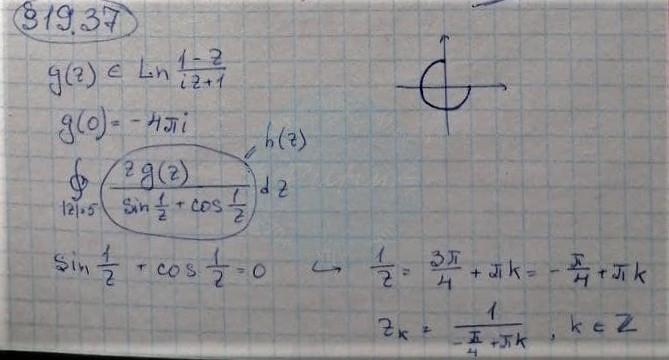 819.37
g(z) ∈ Ln (1-z)/(iz+1)
g(0) = -4πi
h(z)
∮_{|z|=5} (z g(z))/(sin 1/z + cos 1/z) dz
sin 1/z + cos 1/z = 0 ↪ 1/z = 3π/4 + πk = -π/4 + πk
z_k = 1/(-π/4 + πk), k ∈ Z